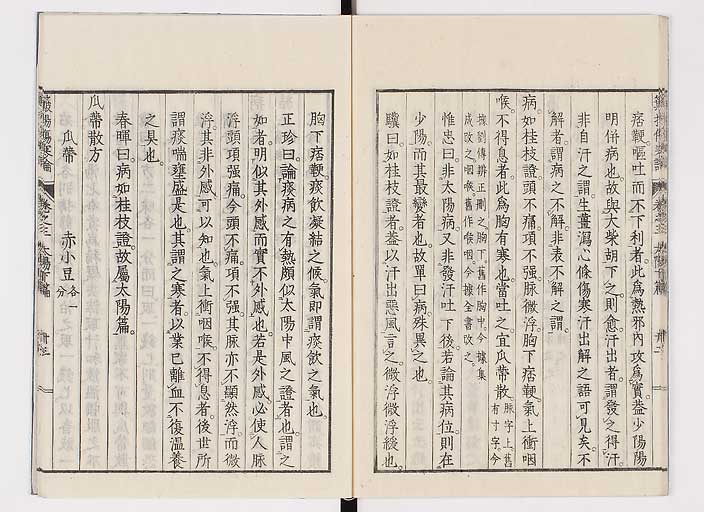 痞鞕嘔吐而不下利者此爲熱邪內攻爲實葢少陽陽
明併病也故與大柴胡下之則愈汗出者謂發之得汗
非自汗之謂生薑瀉心條傷寒汗出解之語可見矣不
解者謂病之不解非表不解之謂
病如桂枝證頭不痛項不强脉微浮胸下痞鞕氣上衝咽
喉不得息者此爲胸有寒也當吐之宜瓜蔕散脉字上舊有寸字今
據劉傅辨正刪之胸下舊作胸中今據集
成改之咽喉舊作喉咽今據全書改之
惟忠曰非太陽病又非發汗吐下後若論其病位則在
少陽而其最變者也故單曰病殊異之也
驥曰如桂枝證者葢以汗出惡風言之微浮微浮緩也
胸下痞鞕痰飮凝結之候氣卽謂痰飮之氣也
正珍曰論痰病之有熱頗似太陽中風之證者也謂之
如者明似其外感而實不外感也若是外感必使人脉
浮頭項强痛今頭不痛項不强其脉亦不顯然浮而微
浮其非外感可以知也氣上衝咽喉不得息者後世所
謂痰喘壅盛是也其謂之寒者以業已離血不復溫養
之具也
春暉曰病如桂枝證故屬太陽篇
瓜蔕散方
瓜蔕　赤小豆各一分